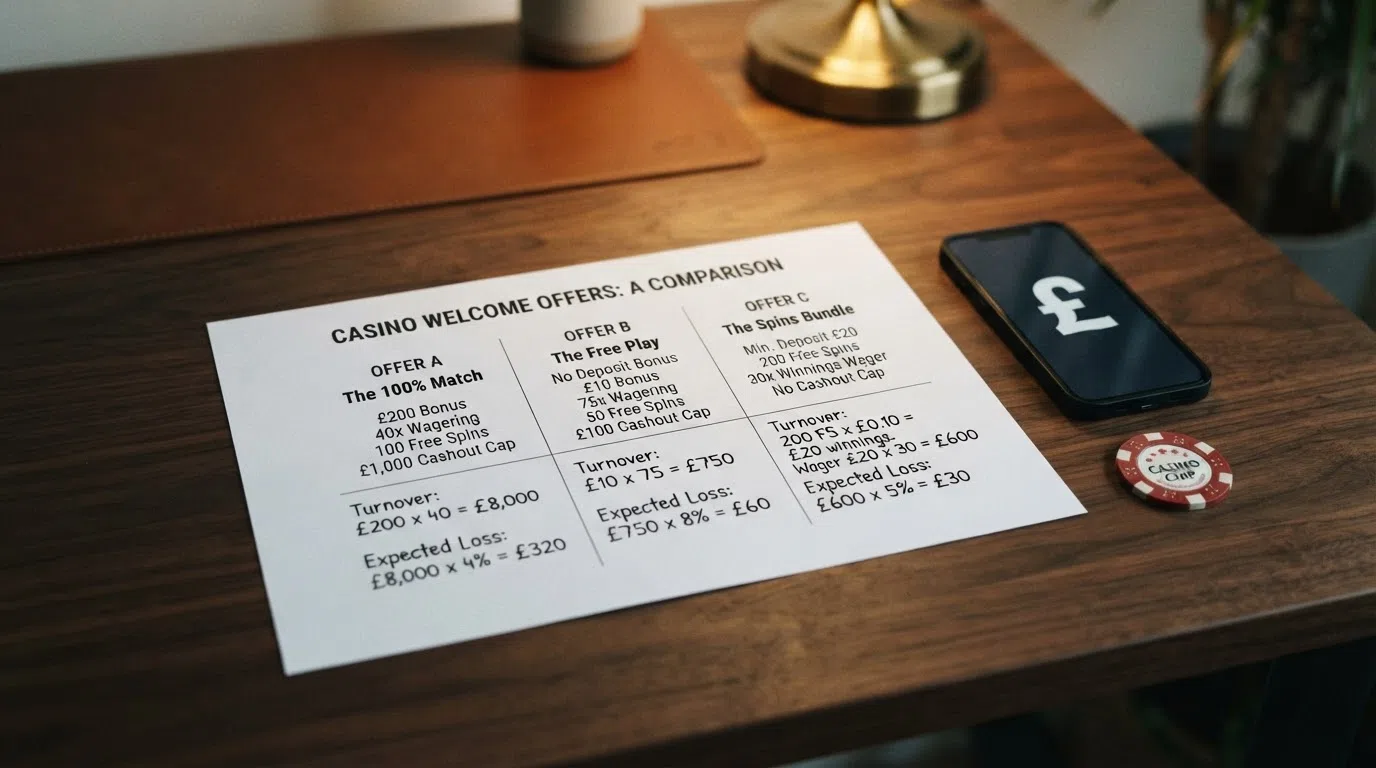 CASINO WELCOME OFFERS: A COMPARISON
OFFER A
The 100% Match
£200 Bonus
40x Wagering
100 Free Spins
£1,000 Cashout Cap
Turnover:
£200 x 40 = £8,000
Expected Loss:
£8,000 x 4% = £320
OFFER B
The Free Play
No Deposit Bonus
£10 Bonus
75x Wagering
50 Free Spins
£100 Cashout Cap
Turnover:
£10 x 75 = £750
Expected Loss:
£750 x 8% = £60
OFFER C
The Spins Bundle
Min. Deposit £20
200 Free Spins
30x Winnings Weger
No Cashout Cap
Turnover:
200 FS x £0.10 =
£20 winnings.
Wager £20 x 30 = £600
Expected Loss:
£600 x 5% = £30
£
CASINO